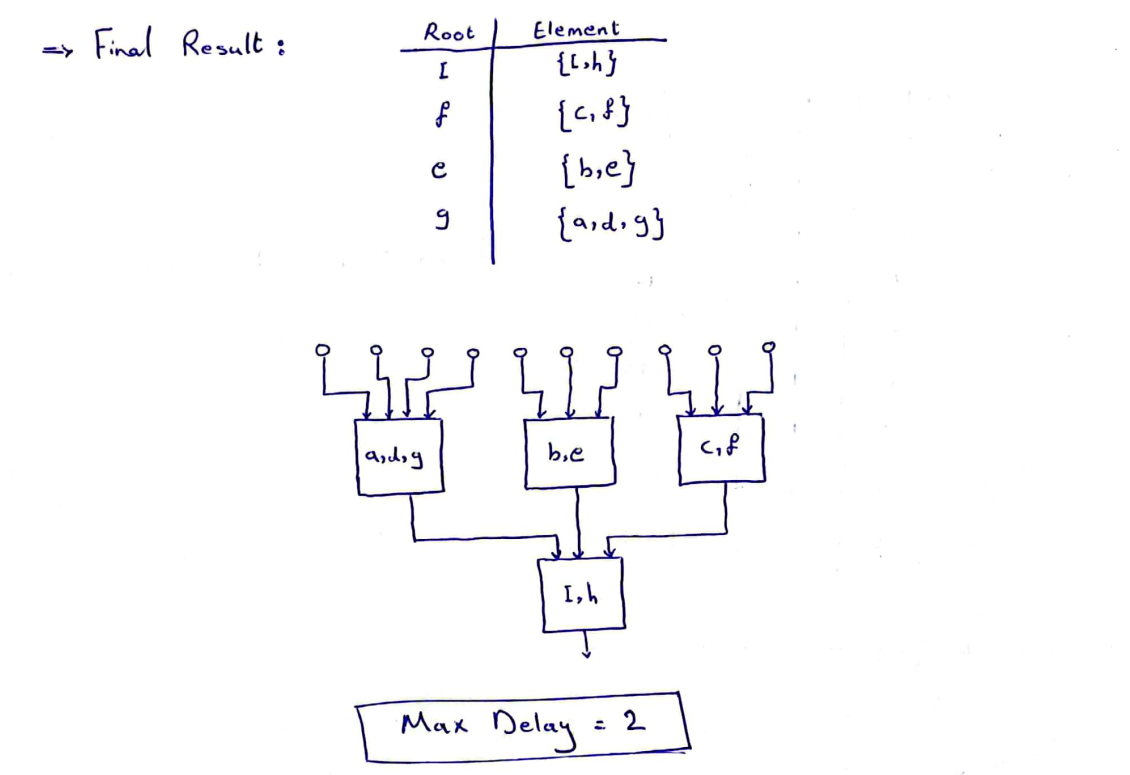 => Final Result :
Root | Element
I | {I,h}
f | {c,f}
e | {b,e}
g | {a,d,g}
a,d,g b,e c,f
I,h
Max Delay = 2